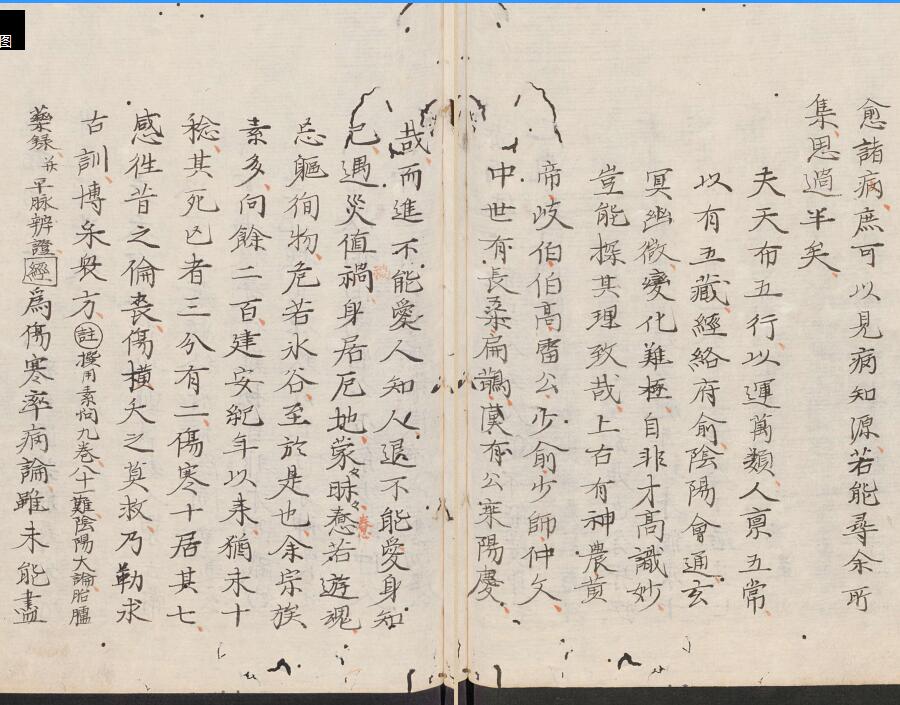 愈諸病庶可以見病知源若能尋余所
集思過半矣
夫天布五行以運萬類人禀五常
以有五藏經絡府俞陰陽會通玄
冥幽微變化難極自非才高識妙
豈能探其理致哉上古有神農黃
帝岐伯伯高雷公少俞少師仲文
中世有長桑扁鵲漢有公乗陽慶
哉而進不能愛人知人退不能愛身知
己遇災值禍身居厄地蒙々昧々惷若遊魂
惷
忘軀徇物危若冰谷至於是也余宗族
素多向餘二百建安紀年以来猶未十
稔其死亡者三分有二傷寒十居其七
感往昔之倫喪傷横夭之莫救乃勒求
古訓博采衆方註撰用素問九卷八十一難陰陽大論胎臚
藥録并平脉辨證經爲傷寒卒病論雖未能盡
图